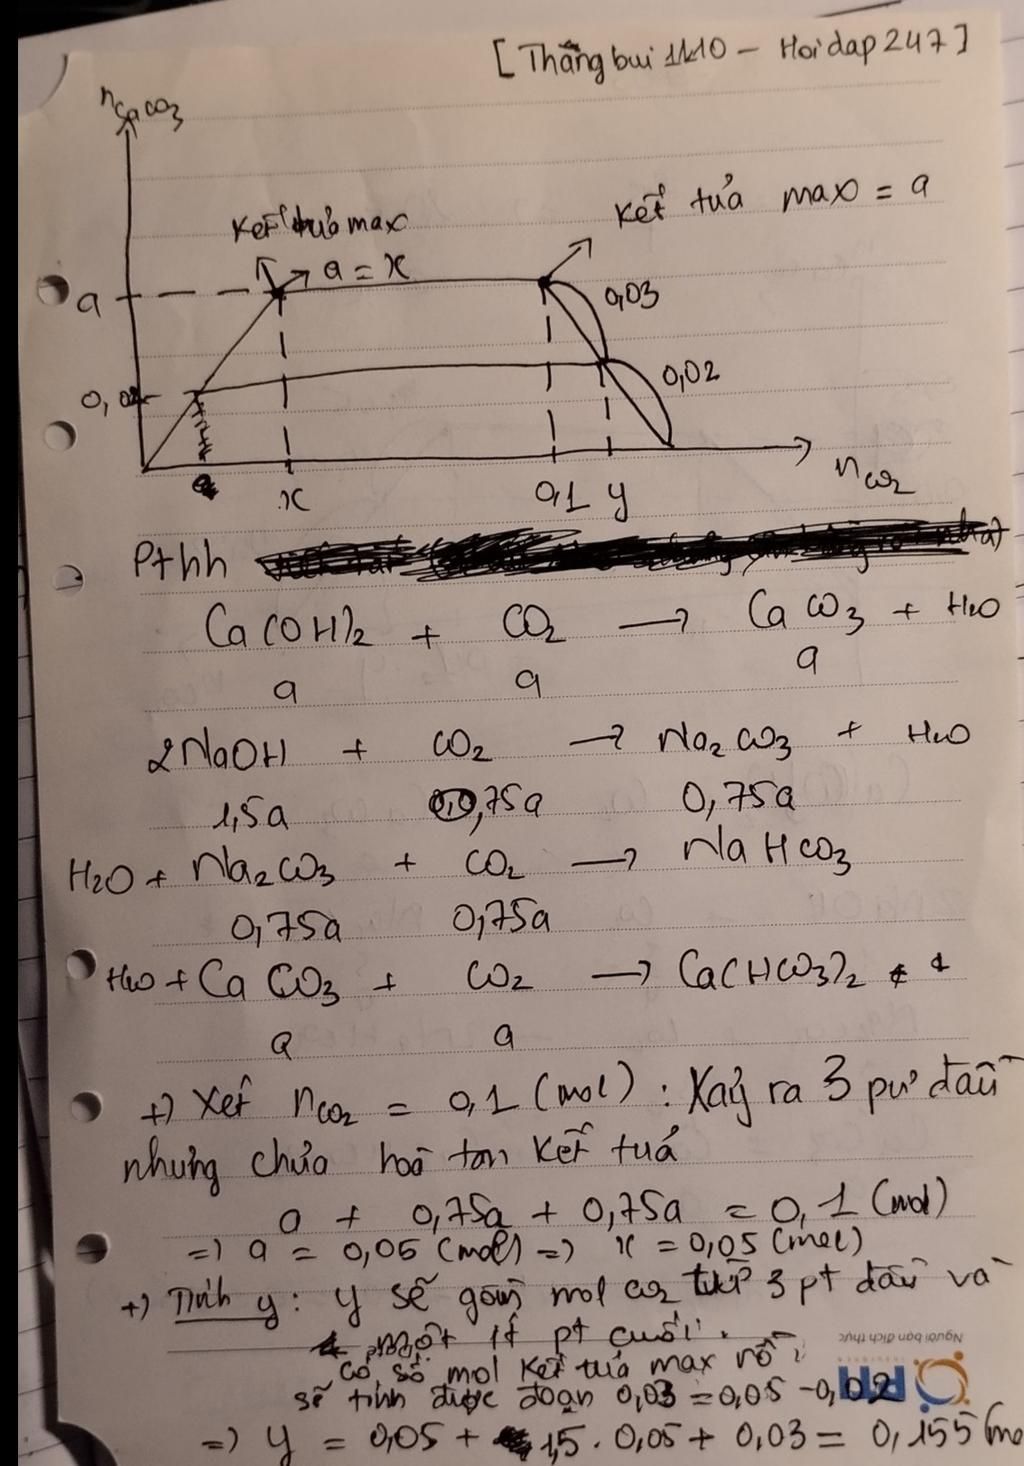 [Thắng bui 11k10 - Hoidap247]
nCaCO3
Kết tủa max
Kết tủa max = a
a = x
a
0,03
0,02
0,02
x
0,1 y
nCO2
Pthh
Ca(OH)2 + CO2 → CaCO3 + H2O
a a a
2NaOH + CO2 → Na2CO3 + H2O
1,5a 0,75a 0,75a
H2O + Na2CO3 + CO2 → NaHCO3
0,75a 0,75a
H2O + CaCO3 + CO2 → Ca(HCO3)2
a a
+) Xét nCO2 = 0,1 (mol) : Xảy ra 3 pư đầu
nhưng chưa hoà tan kết tủa
a + 0,75a + 0,75a = 0,1 (mol)
=) a = 0,05 (mol) =) x = 0,05 (mol)
+) Tính y : y sẽ gồm mol co2 từ 3 pt đầu và
một ít pt cuối.
Người bạn đích thực
có số mol kết tủa max rồi
sẽ tính được đoạn 0,03 = 0,05 - 0,02
=) y = 0,05 + 1,5 . 0,05 + 0,03 = 0,155 (mo